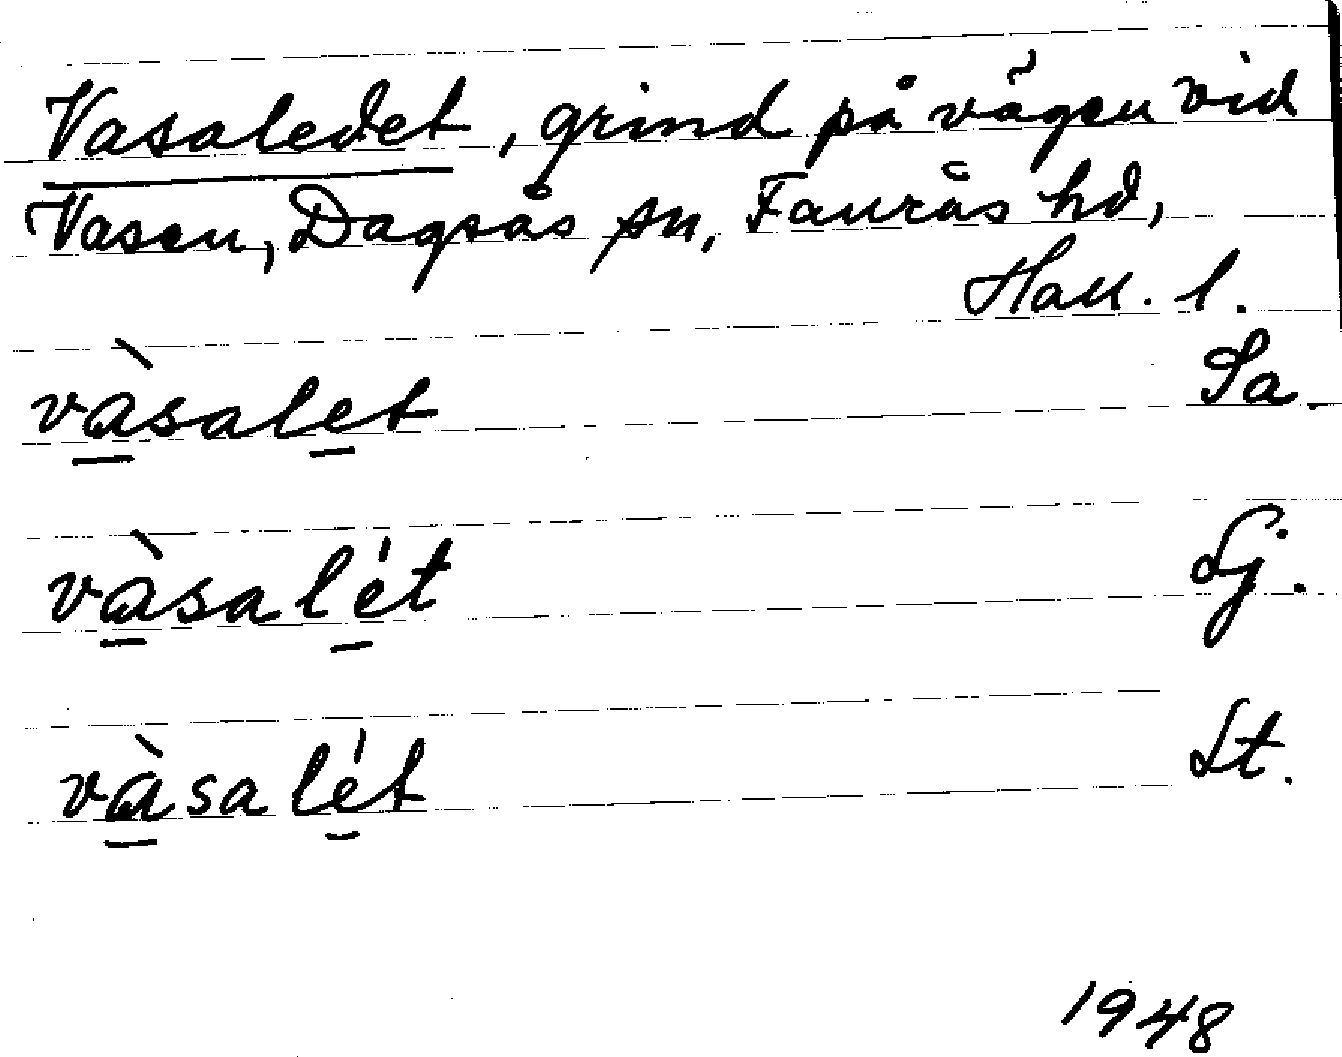 Vasaledet, grind på vägen vid
Vasen, Dagsås sn, Faurås hd,
Hall. l.
vàsalet Sa.
vàsalét Lj.
vàsalét St.
1948